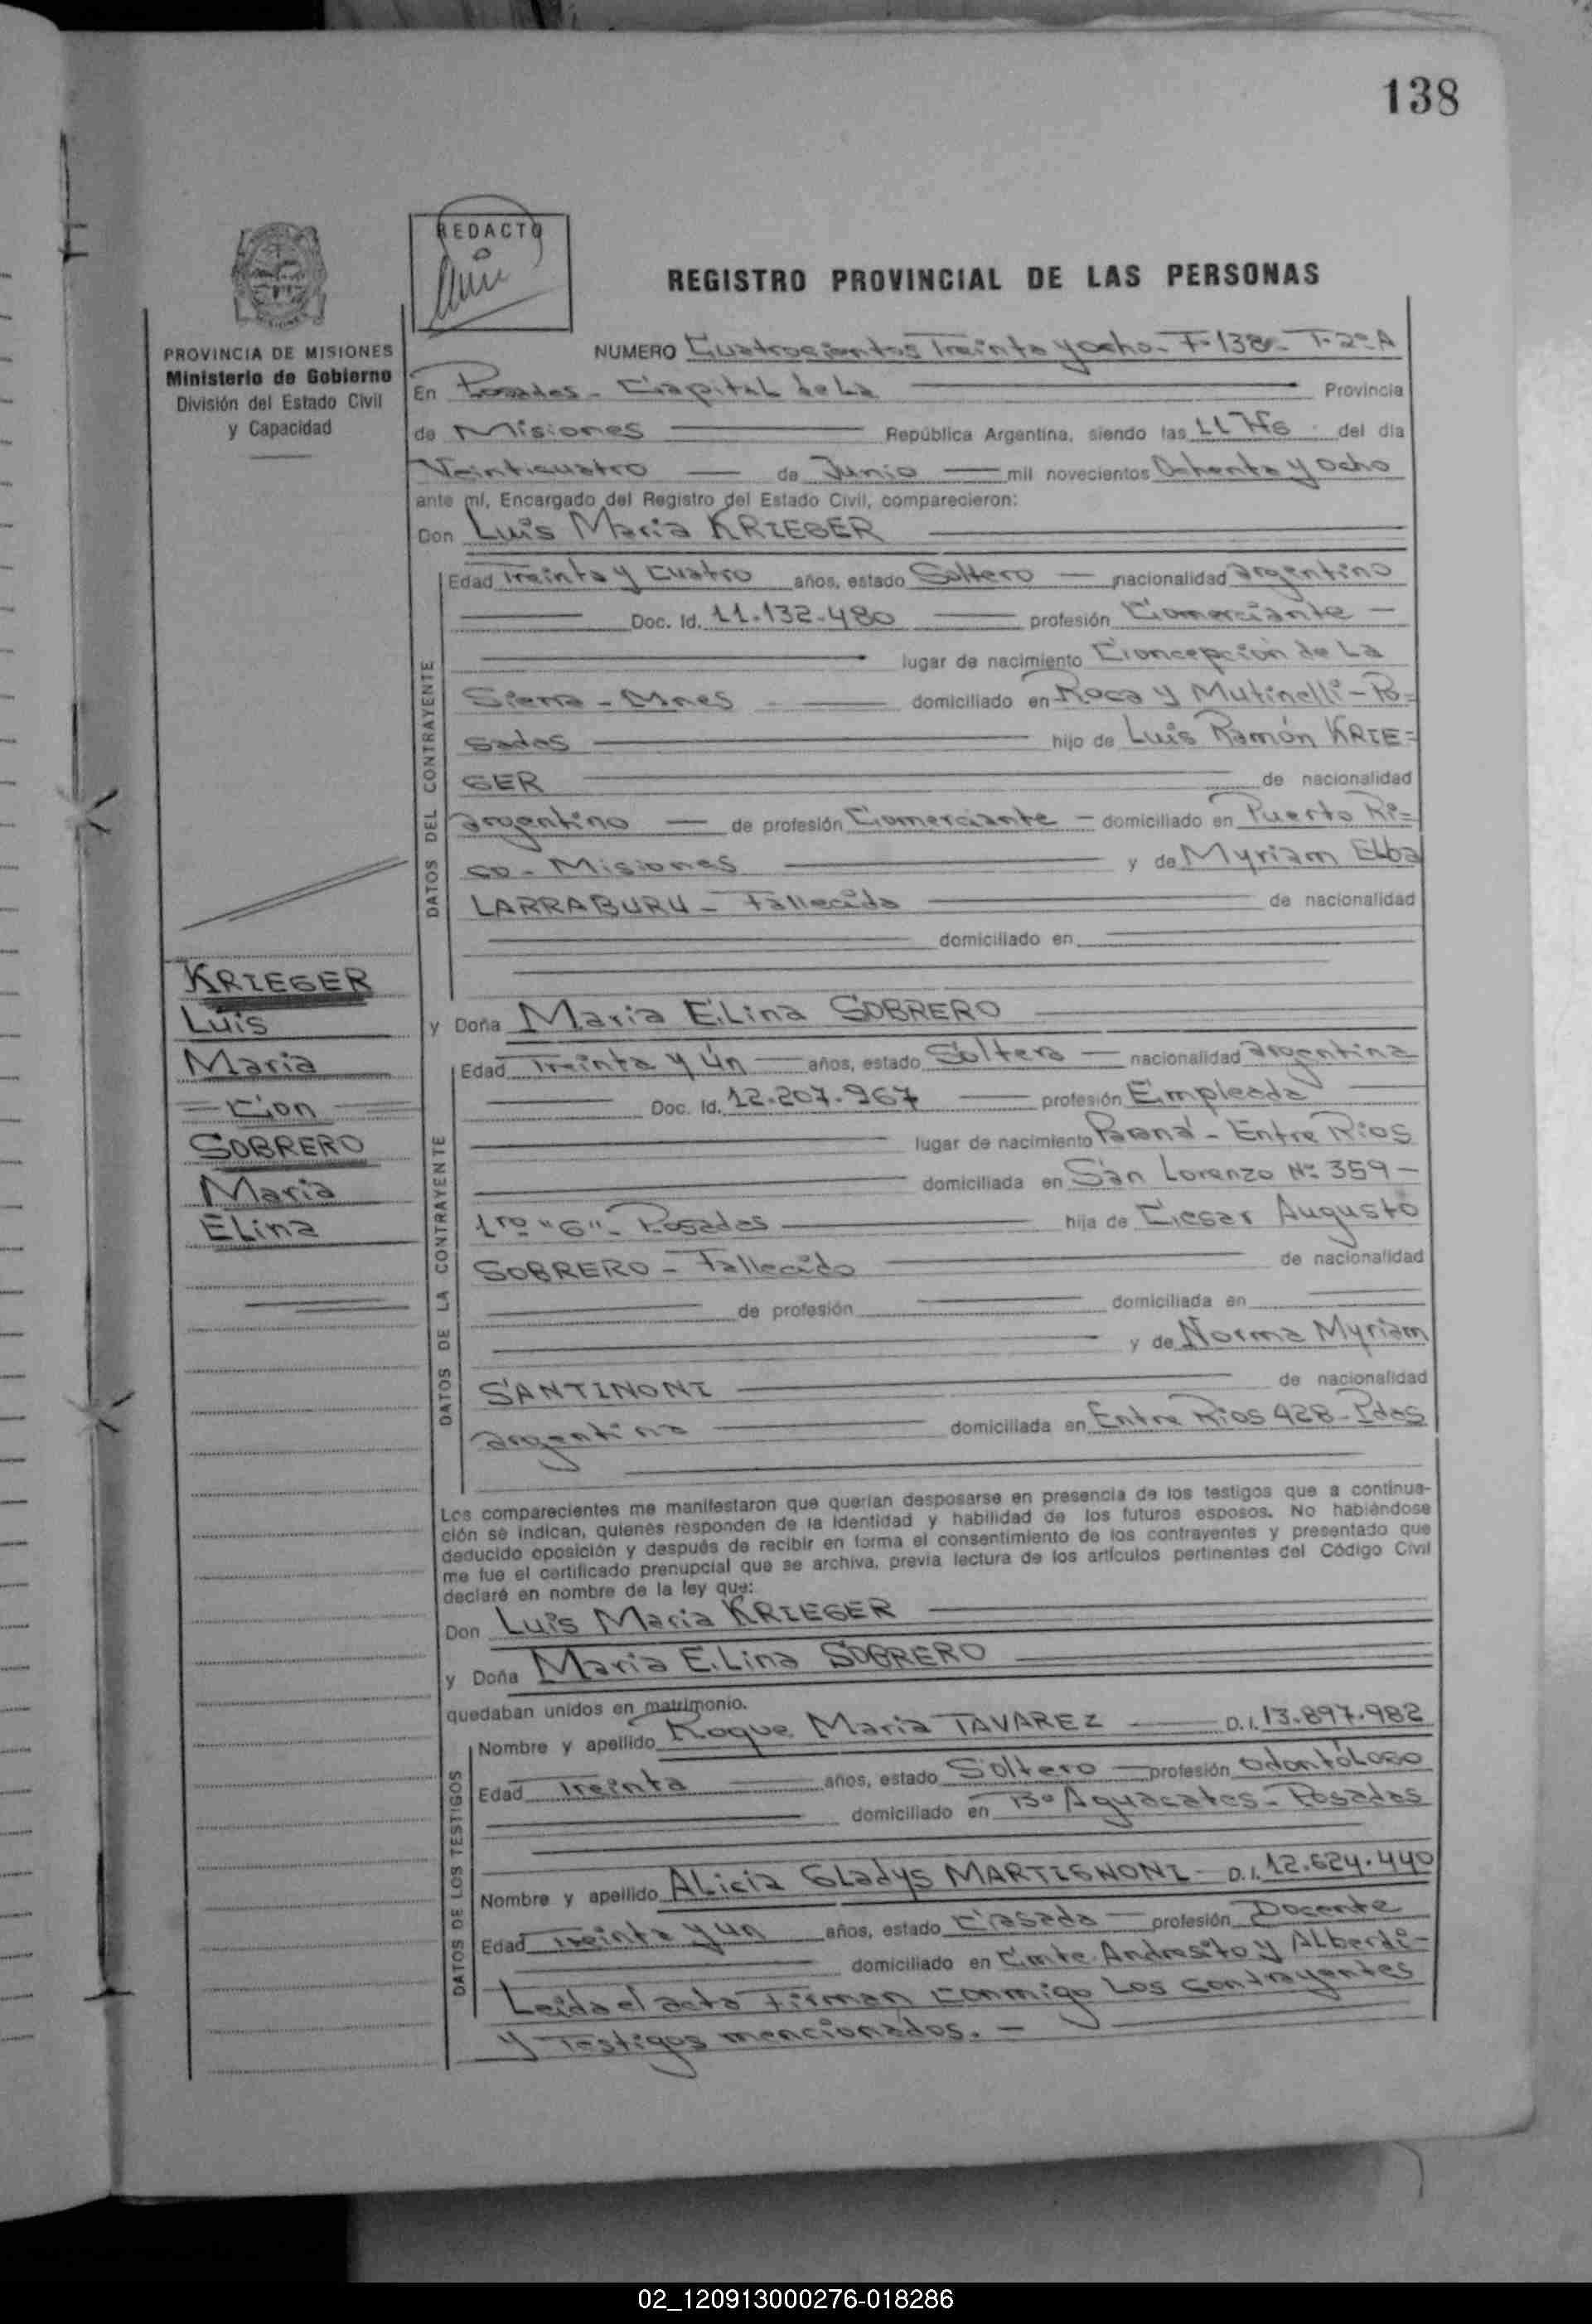 138
REDACTO
REGISTRO PROVINCIAL DE LAS PERSONAS
PROVINCIA DE MISIONES
Ministerio de Gobierno
División del Estado Civil
y Capacidad
NUMERO Cuatrocientos Treinta y ocho - F-138 - T-2º A
En Posadas - Capital de La Provincia
de Misiones República Argentina, siendo las 11 Hs. del día
Veinticuatro de Junio mil novecientos Ochenta y Ocho
ante mí, Encargado del Registro del Estado Civil, comparecieron:
Don Luis Maria KRIEGER
DATOS DEL CONTRAYENTE
Edad Treinta y Cuatro años, estado Soltero nacionalidad argentino
Doc. Id. 11.132.480 profesión Comerciante -
lugar de nacimiento Concepción de La
Sierra - Mnes domiciliado en Roca y Mutinelli - Po=
sadas hijo de Luis Ramón KRIE=
GER de nacionalidad
argentino de profesión Comerciante - domiciliado en Puerto Ri=
co - Misiones y de Myriam Elba
LARRABURU - Fallecida de nacionalidad
domiciliado en
KRIEGER
Luis
Maria
con
SOBRERO
Maria
Elina
y Doña Maria Elina SOBRERO
DATOS DE LA CONTRAYENTE
Edad Treinta y Un años, estado Soltera nacionalidad argentina
Doc. Id. 12.207.967 profesión Empleada
lugar de nacimiento Paraná - Entre Rios
domiciliada en San Lorenzo Nº 359 -
1ro "G" - Posadas hija de Cesar Augusto
SOBRERO - Fallecido de nacionalidad
de profesión domiciliada en
y de Norma Myriam
SANTINONI de nacionalidad
argentina domiciliada en Entre Rios 428 - Pdas
Los comparecientes me manifestaron que querían desposarse en presencia de los testigos que a continua-
ción se indican, quienes responden de la identidad y habilidad de los futuros esposos. No habiéndose
deducido oposición y después de recibir en forma el consentimiento de los contrayentes y presentado que
me fue el certificado prenupcial que se archiva, previa lectura de los artículos pertinentes del Código Civil
declaré en nombre de la ley que:
Don Luis Maria KRIEGER
y Doña Maria Elina SOBRERO
quedaban unidos en matrimonio.
DATOS DE LOS TESTIGOS
Nombre y apellido Roque Maria TAVAREZ D.I. 13.897.982
Edad Treinta años, estado Soltero profesión Odontólogo
domiciliado en Bº Aguacates - Posadas
Nombre y apellido Alicia Gladys MARTIGNONI - D.I. 12.624.440
Edad Treinta y un años, estado Casada profesión Docente
domiciliado en Cmte. Andresito y Alberdi -
Leida el acta Firman conmigo Los contrayentes
y Testigos mencionados. -
02_120913000276-018286